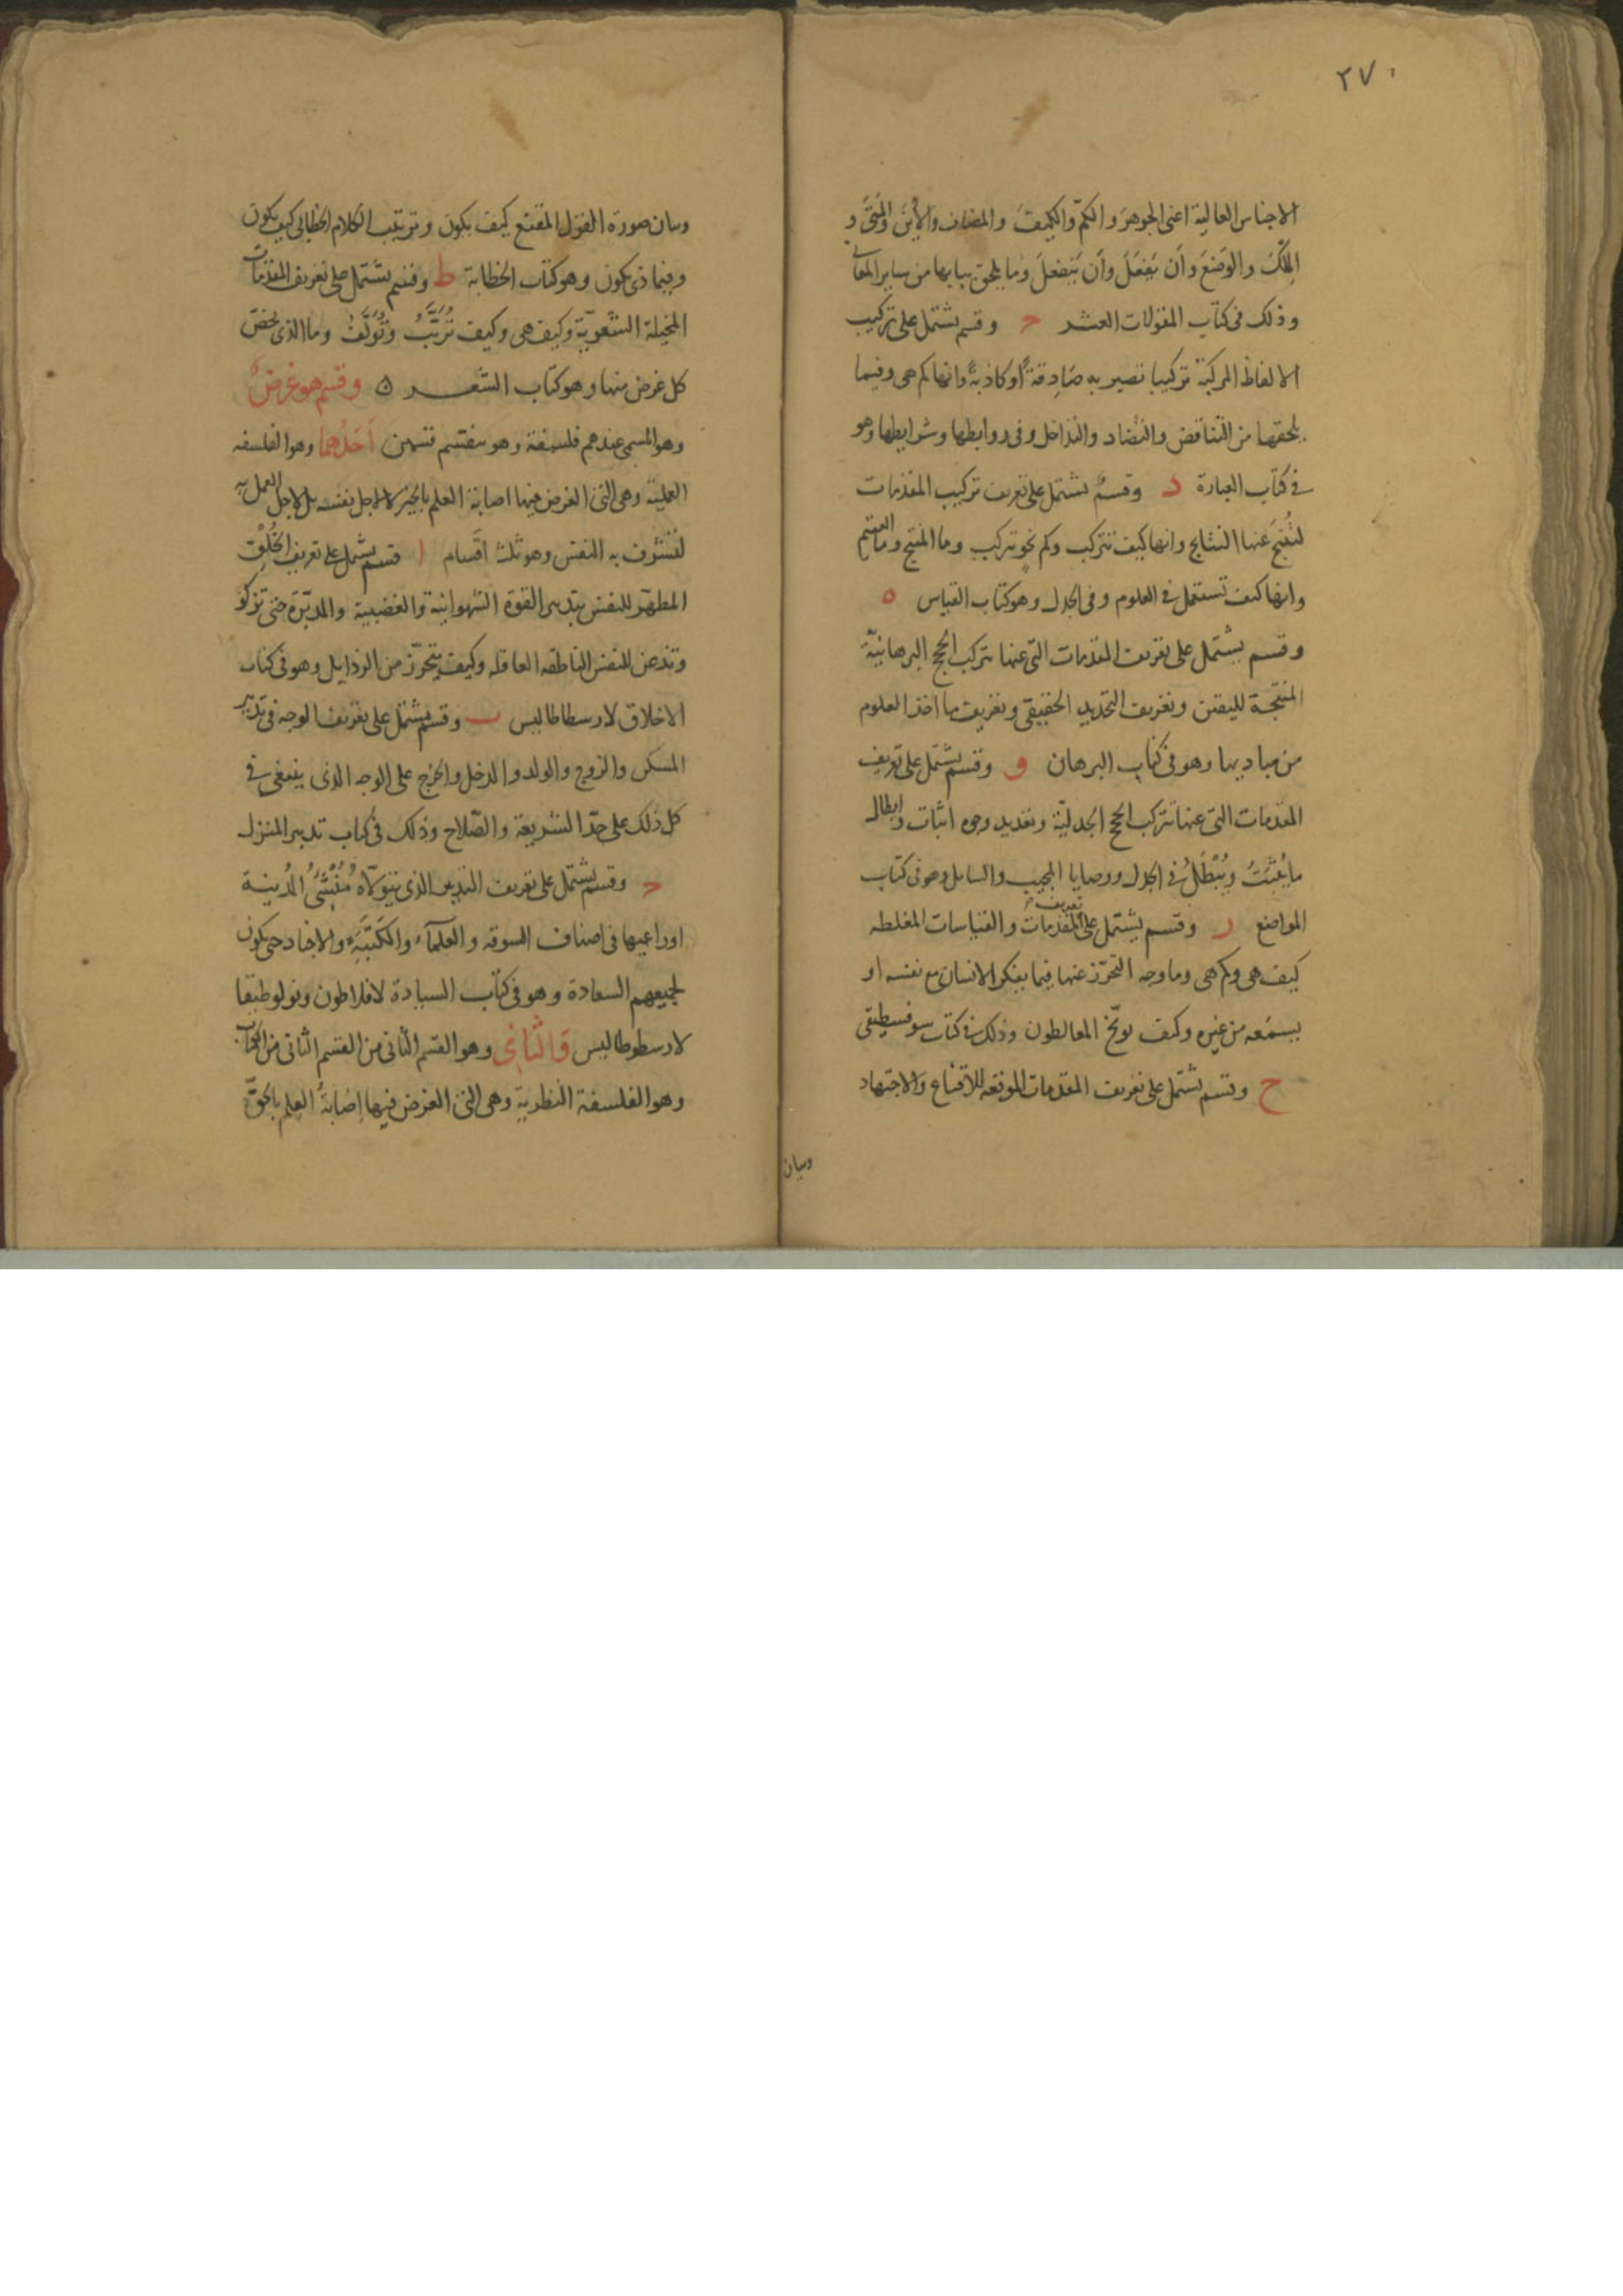 ٢٧٠
الاجناس العالية اعنى الجوهرَ والكمّ والكيفَ والمضاف والأينَ والمتىَ و
المِلكَ والوَضعَ وأن يَفعَلَ وأن يَنفعلَ وما يلحق ببابها من ساير المعانى
وذلك فى كتاب المقولات العشر ح وقسم يشتمل على تركيب
الالفاظ المركبة تركيبا تصير به صَادِقةً أو كاذبةً وانها كم هى وفيما
يلحقها من التناقض والتضاد والتداخل وفى روابطها وشرايطها وهو
فى كتاب العبارة د وقسمٌ يشتمل على تعريف تركيب المقدمات
لتُنتِجَ عَنها النتايج وانها كيف تتركب وكم نحوٍ تتركب وما المنتج وما العقيم
وانها كيف تستعمل فى العلوم وفى الجدل وهو كتاب القياس ه
وقسم يشتمل على تعريف المقدمات التى عنها تتركب الحجج البرهانيّة
المنتجة لليقين وتعريف التحديد الحقيقى وتعريف ما اخذ العلوم
من مباديها وهو فى كتاب البرهان و وقسم يشتمل على تعريف
المقدمات التى عنها تتركب الحجج الجدليّة وتعديد وجوه اثبات وابطال
ما يُثبَتُ ويُبْطَلُ فى الجدل ووصايا المجيب والسايل وهو فى كتاب
المواضع ز وقسم يشتمل على تعريف المقدمات والقياسات المغلطه
كيف هى وكم هى وما وجه التحرّز عنها فيما يفكر الانسان مع نفسه او
يسمَعه من غيره وكيف يوبّخ المغالطون وذلك فى كتاب سوفسطيقى
ح وقسم يشتمل على تعريف المقدمات الموقعه للاقناع والاجتهاد
وبيان
وبيان صورة القول المقنع كيف يكون وترتيب الكلام الخطابى كيف يكون
وفيماذى يكون وهو كتاب الخطابة ط وقسم يشتمل على تعريف المقدمات
المخيلة الشعريّة وكيف هى وكيف تُرَتَّبُ وتُؤلَّفُ وما الذى يخصّ
كل غرض منها وهو كتاب الشعـــر ه وقسم هو غرضٌ
وهو المسمى عندهم فلسفة وهو ينقسم قسمين أحَدُهما وهو الفلسفه
العمليّة وهى التى الغرض فيها اصابة العلم بالخير لا لاجل نفسه بل لاجل العمل به
لتشرف به النفس وهو ثلث اقسام ا قسم يشتمل على تعريف الخُلقِ
المطهّر للنفس بتدبير القوة الشهوانية والغضبية والمدبّرة حتى تزكو
وتذعن للنفس الناطقه العاقله وكيف يتحرّز من الرذايل وهو فى كتاب
الاخلاق لارسطاطاليس ب وقسم يشتمل على تعريف الوجه فى تدبير
المسكن والزوج والولد والدخل والخرج على الوجه الذى ينبغى فى
كل ذلك على حدّ الشريعة والصّلاح وذلك فى كتاب تدبير المنزل
ح وقسم يشتمل على تعريف التدبير الذى يتولّاه مُنشِئُ المُدينة
او راعيها فى اصناف السوقه والعلماء والكَتَبَةِ والاجناد حتى يكون
لجميعهم السعادة وهو فى كتاب السيادة لافلاطون وبولوطيقا
لارسطوطاليس وَالثانى وهو القسم الثانى من القسم الثانى من الكتاب
وهو الفلسفة النظريّة وهى التى الغرض فيها إصَابةُ العلم بالحقّ